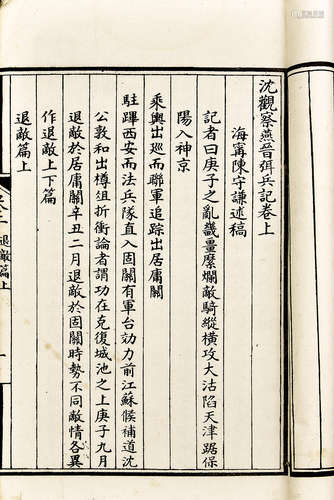 沈觀察燕晉弭兵記卷上
海寧陳守謙述稿
記者曰庚子之亂畿畺糜爛敵騎縱橫攻大沽陷天津踞保
陽入神京
乘輿出巡而聯軍追踪出居庸關
駐蹕西安而法兵隊直入固關有軍台効力前江蘇候補道沈
公敦和出樽俎折衝論者謂功在克復城池之上庚子九月
退敵於居庸關辛丑二月退敵於固關時勢不同敵情各異
作退敵上下篇
退敵篇上
退敵篇上
一